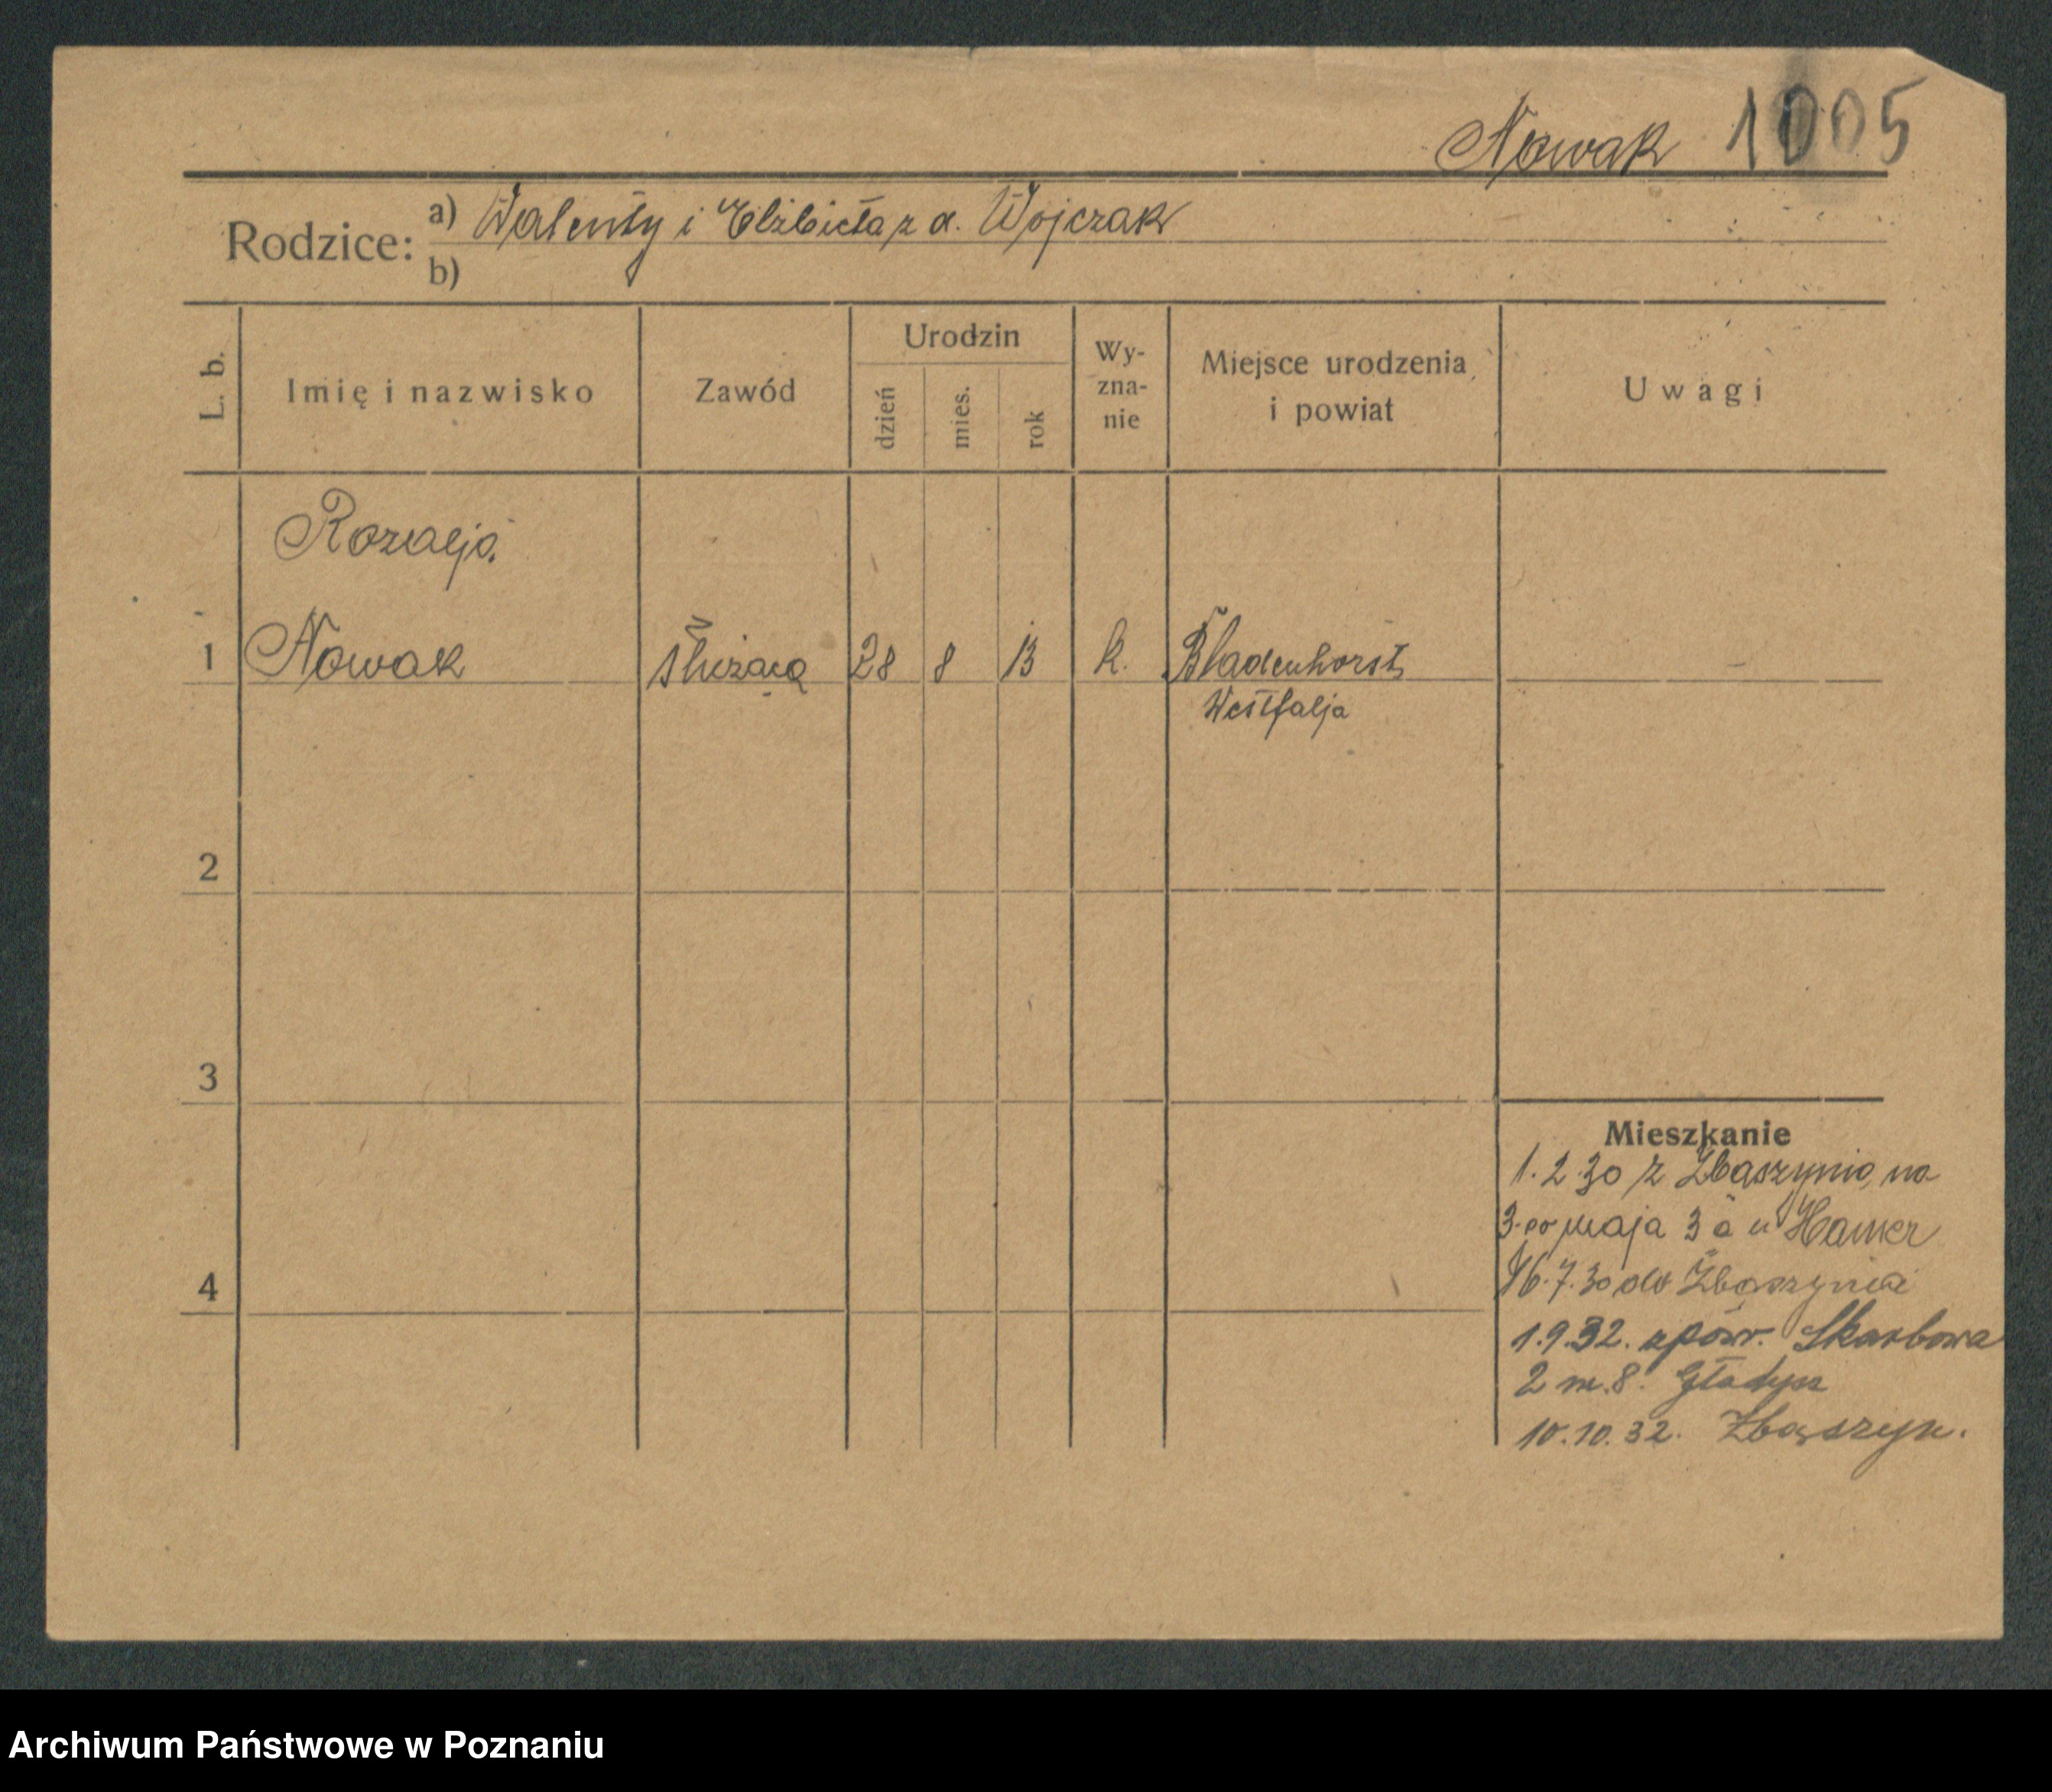 Nowak 1005
Rodzice: a) Walenty i Elżbieta z d. Wojczak
b)
L. b.
Imię i nazwisko
Zawód
Urodzin
dzień
mies.
rok
Wy-
zna-
nie
Miejsce urodzenia
i powiat
Uwagi
Rozalja
1 Nowak służąca 28 8 13 k. Bladenhorst
Westfalja
2
3
4
Mieszkanie
1.2.30 z Zbąszynia, na
3-go maja 3a u Hamer
16.7.30 do Zbąszynia
1.9.32. zpow. Skarbowa
2 m.8. Gładysz
10.10.32. Zbąszyn.
Archiwum Państwowe w Poznaniu